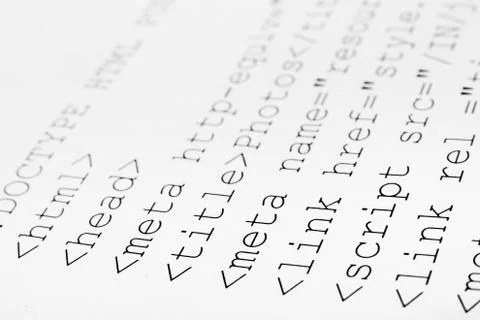 DOCTYPE HTML
<html>
<head>
<meta http-equiv
<title>Photos</tit
<meta name="resour
<link href="style.
<script src="/IN/j
<link rel ="ti